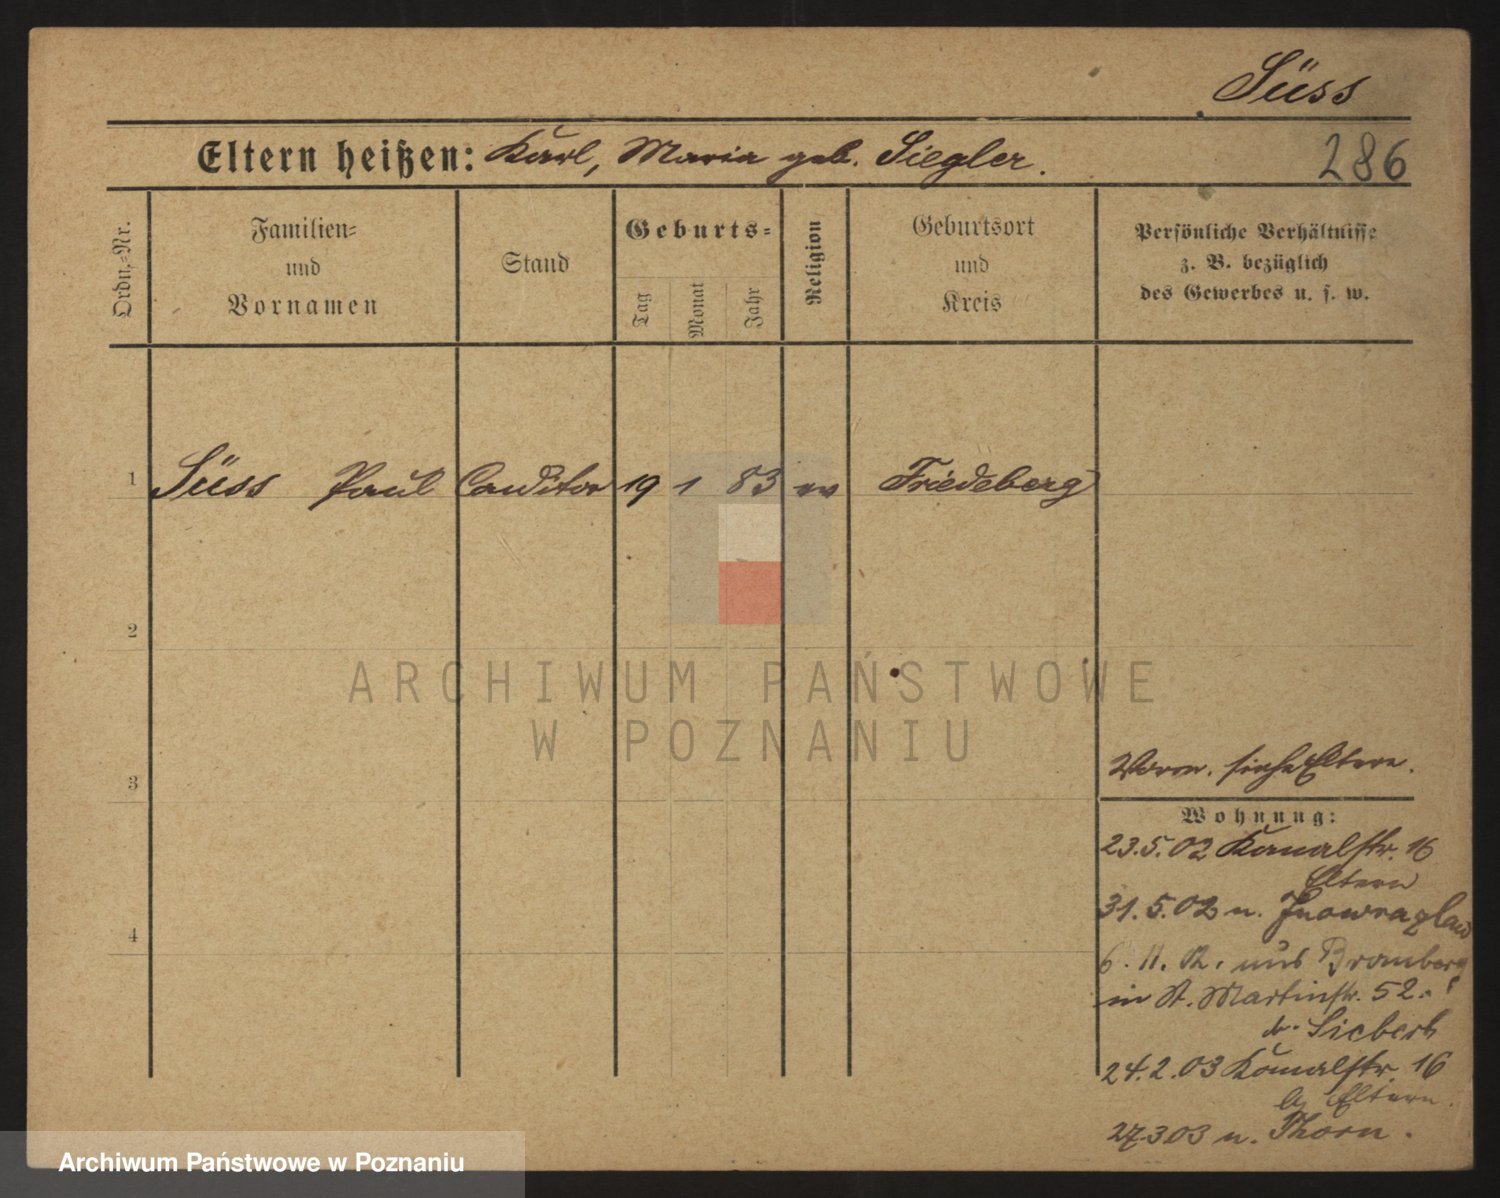 Süss
Eltern heißen: Karl, Maria geb. Siegler.
286
Ordn.-Nr.
Familien-
und
Vornamen
Stand
Geburts-
Tag
Monat
Jahr
Religion
Geburtsort
und
Kreis
Persönliche Verhältnisse
z. B. bezüglich
des Gewerbes u. s. w.
1 Süss Paul Conditor 19 1 83 ev Friedeberg
2
ARCHIWUM PAŃSTWOWE
W POZNANIU
3
4
Vorm. siehe Eltern.
Wohnung:
23.5.02 Kanalstr. 16
Eltern
31.5.02 n. Inowrazlaw
6.11.02. aus Bromberg
in St. Martinstr. 52.
b. Siebert
24.2.03 Kanalstr. 16
b. Eltern.
27 3 03 n. Thorn.
Archiwum Państwowe w Poznaniu